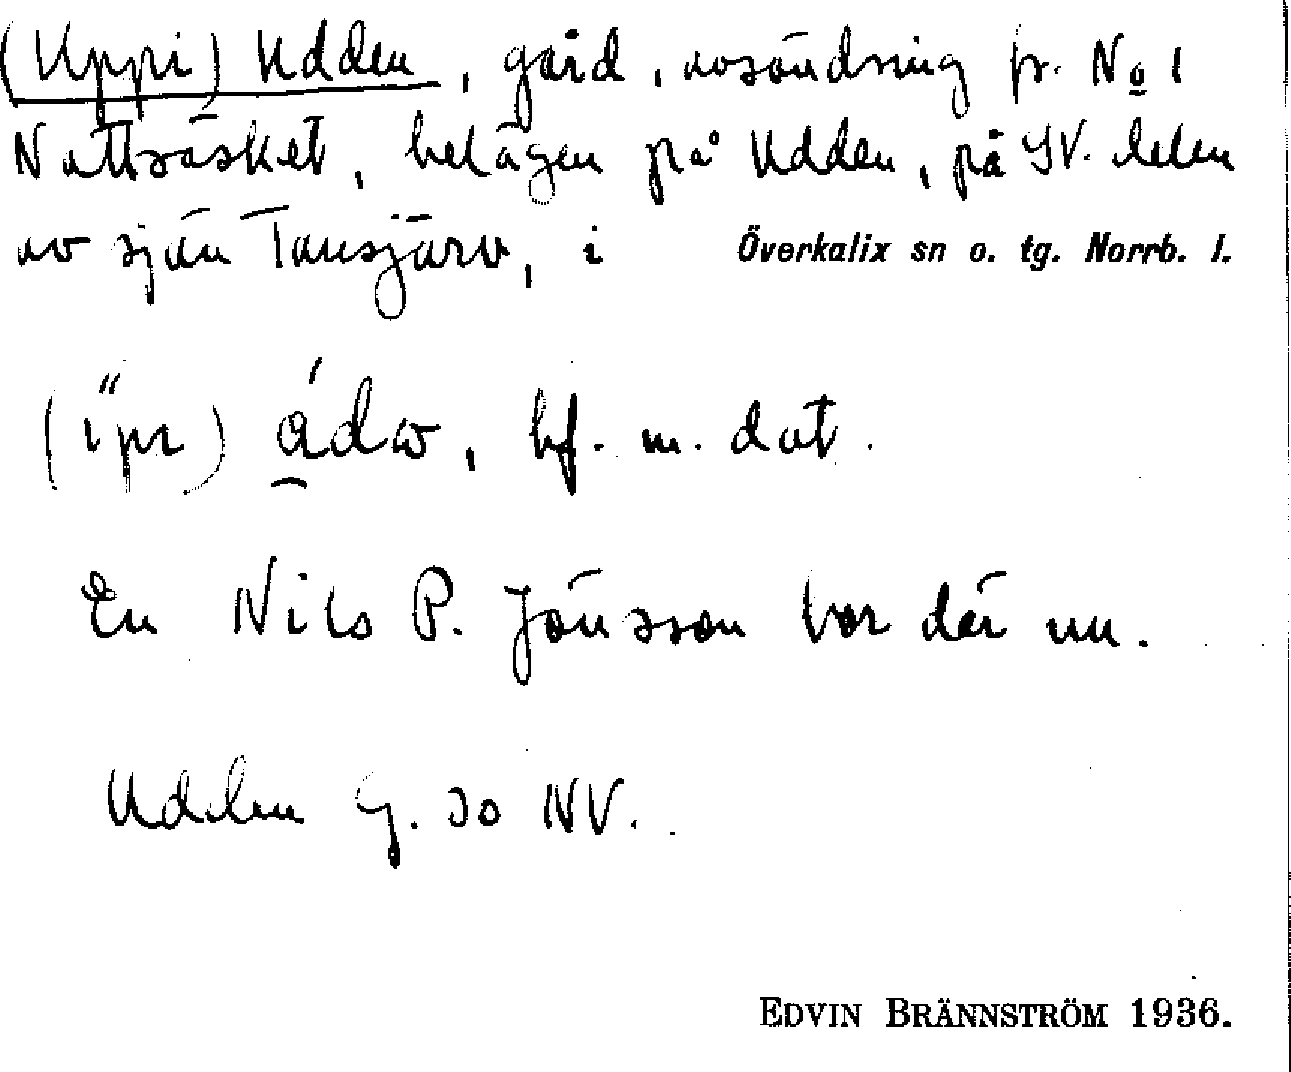 (Uppi) Udden, gård, avsöndring fr. No 1
Natträsket, belägen på Udden, på SV. delen
av sjön Tansjärv, i Överkalix sn o. tg. Norrb. l.
bf. m. dat.
En Nils P. Jönsson bor där nu.
Udden G. 30 NV.
EDVIN BRÄNNSTRÖM 1936.